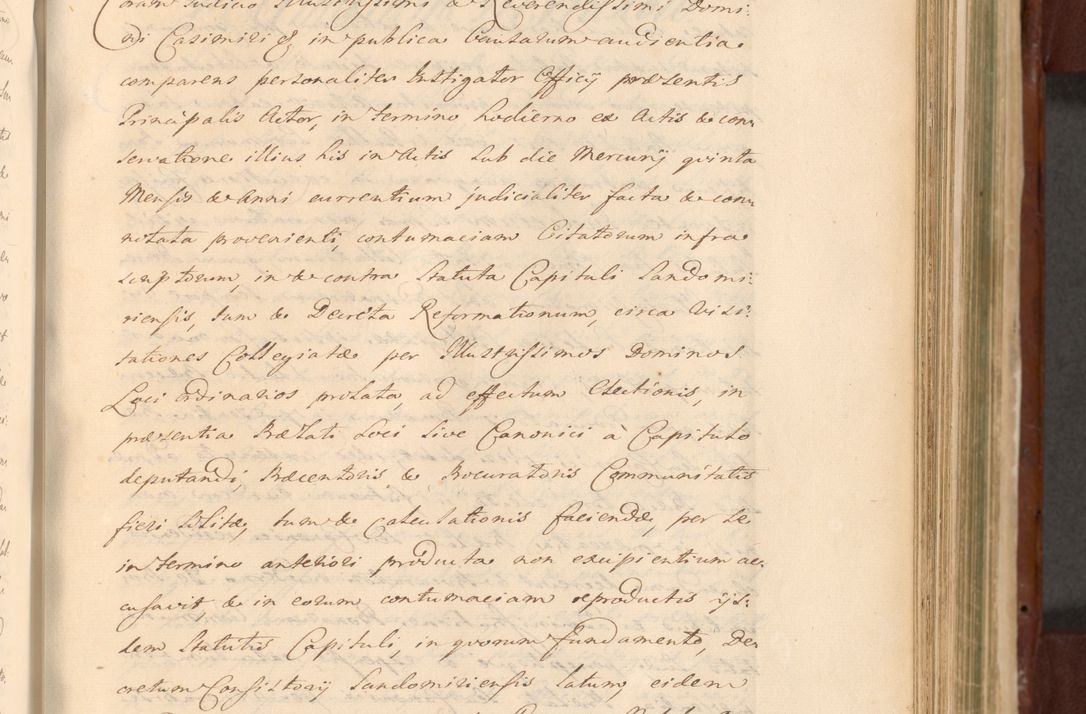 Coram Judicio Illustrissimi & Reverendissimi Domi:
ni Casimiri &, in publica Causarum audientia
comparens personaliter Instigator Officij præsentis
Principalis Actor, in termino hodierno ex Actis & con:
servatione illius his in Actis sub die Mercurij quinta
Mensis & Anni currentium judicialiter facta & con:
notata provenienti, contumaciam Citatorum infra
scriptorum, in & contra Statuta Capituli Sandomi:
riensis, tum & Decreta Reformationum, circa Visi:
tationes Collegiatæ per Illustrissimos Dominos
Loci Ordinarios prolata, ad effectum Electionis, in
præsentia Prælati Loci sive Canonici à Capitulo
deputandi, Præcentoris, & Procuratoris Communitatis
fieri solitæ, tum & Calculationis faciendæ, per se
in termino anteriori producta non excipientium ac:
cusavit, & in eorum contumaciam reproductis ijs:
dem Statutis Capituli, in quorum fundamento, De:
cretum Consistorij Sandomiriensis latum, eidem